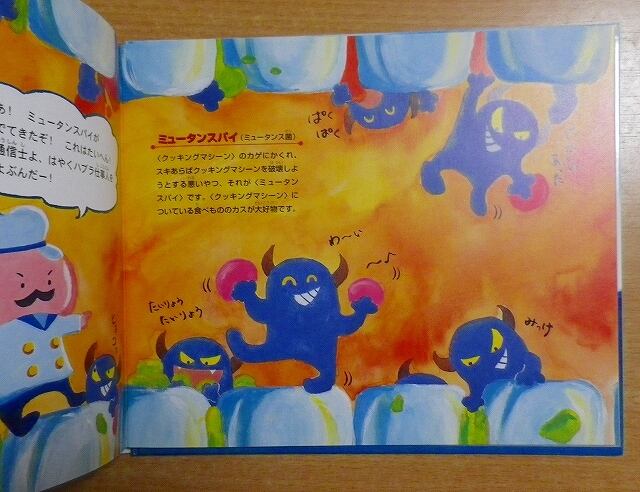 あ! ミュータンスパイが
でてきたぞ! これはたいへん!
通信士よ、はやくハブラシ仕事人を
よぶんだー!
ミュータンスパイ(ミュータンス菌)
〈クッキングマシーン〉のカゲにかくれ、
スキあらばクッキングマシーンを破壊しよ
うとする悪いやつ、それが〈ミュータン
スパイ〉です。〈クッキングマシーン〉に
ついている食べもののカスが大好物です。
ぱく
ぱく
わ〜い
〜♪
たいりょう
たいりょう
みっけ